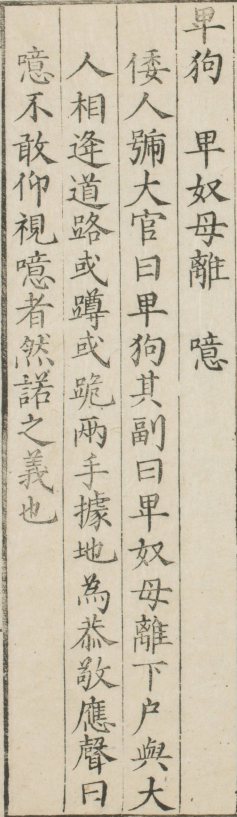 卑狗 卑奴母離 噫
倭人號大官曰卑狗其副曰卑奴母離下户與大
人相逄道路或蹲或跪兩手據地為恭敬應聲曰
噫不敢仰視噫者然諾之義也